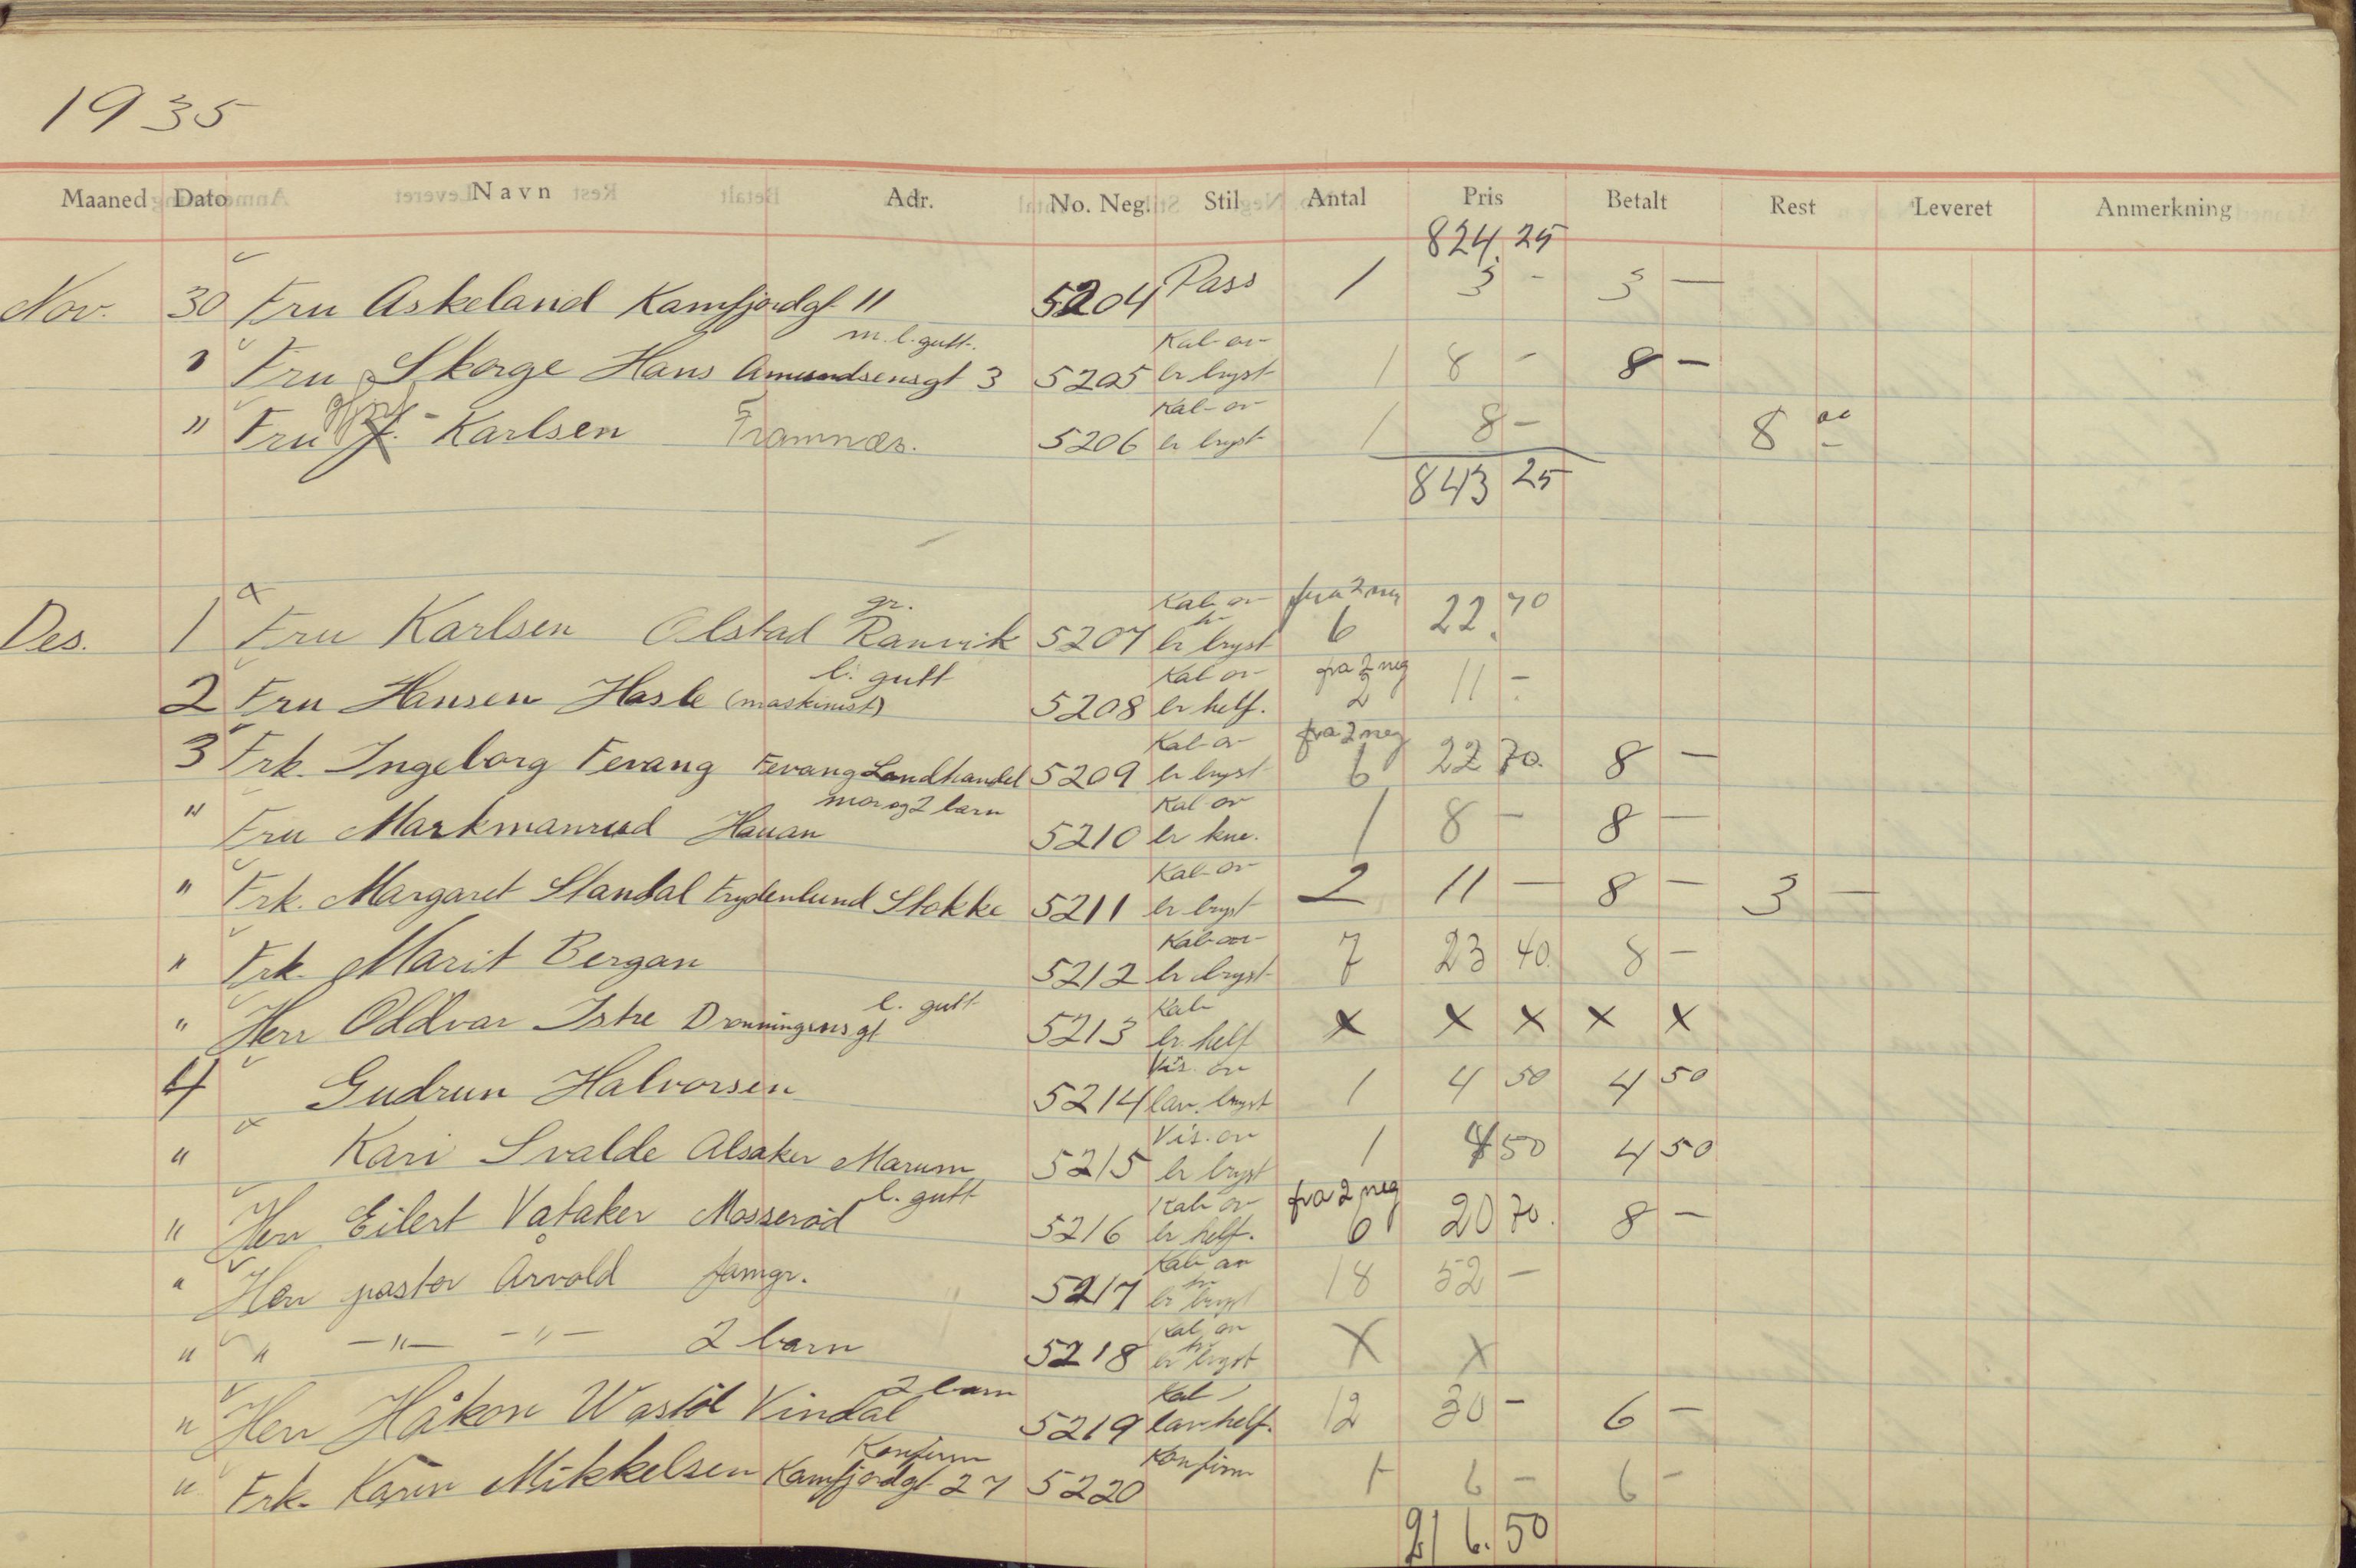 1935
Maaned Dato Navn Adr. No. Neg. Stil Antal Pris Betalt Rest Leveret Anmerkning
824.25
Nov. 30 Fru Askeland Kamfjordgt 11 5204 Pass 1 3 - 3 —
m. l. gutt. Kab-or
" Fru Skorge Hans Amundsensgt 3 5205 br bryst 1 8 - 8 -
Kab-or
" Fru Karlsen Framnæs. 5206 br bryst 1 8 - 8 oo
843 25
gr. Kab or fra 2 neg
Des. 1 Fru Karlsen Olstad Ranvik 5207 br bryst 6 22.70
l. gutt Kab or fra 2 neg
2 Fru Hansen Hasle (maskinist) 5208 br helf. 2 11 -
Kab-or fra 2 neg
3 Frk. Ingeborg Fevang Fevang Landhandel 5209 br bryst 6 22 70. 8 —
mor og 2 barn Kab or
" Fru Markmanrud Hauan 5210 br kne. 1 8 - 8 —
Kab-or
" Frk. Margaret Standal Frydenlund Stokke 5211 br bryst 2 11 — 8 — 3 —
Kab-or
" Frk. Marit Bergan 5212 br bryst 7 23 40. 8 -
l. gutt Kab
" Herr Oddvar Istre Dronningensgt 5213 br helf x x x x x
Vis. or
4 Gudrun Halvorsen 5214 lav. bryst 1 4 50 4 50
Vis. or
" Kari Svalde Alsaker Marum 5215 br bryst 1 4 50 4 50
l. gutt Kab or fra 2 neg
" Herr Eilert Vataker Mosserød 5216 br helf. 6 20 70. 8 -
Kab or
" Herr pastor Arvold famgr. 5217 br bryst 18 52 -
Kab or
" " —"— —"— 2 barn 5218 br bryst X X
2 barn Kab
" Herr Håkon Wastøl Vindal 5219 lav helf. 12 30 - 6 -
Konfirm Konfirm
" Frk. Karin Mikkelsen Kamfjordgt 27 5220 1 6 - 6 -
216.50